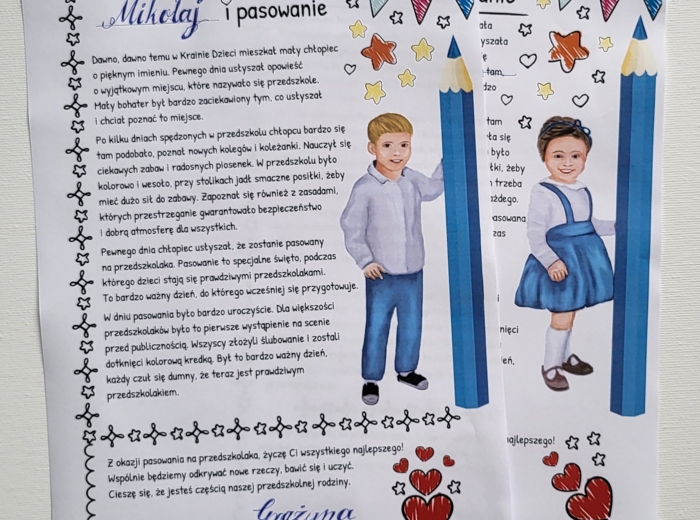 Mikołaj i pasowanie
Dawno, dawno temu w Krainie Dzieci mieszkał mały chłopiec
o pięknym imieniu. Pewnego dnia usłyszał opowieść
o wyjątkowym miejscu, które nazywało się przedszkole.
Mały bohater był bardzo zaciekawiony tym, co usłyszał
i chciał poznać to miejsce.
Po kilku dniach spędzonych w przedszkolu chłopcu bardzo się
tam podobało, poznał nowych kolegów i koleżanki. Nauczył się
ciekawych zabaw i radosnych piosenek. W przedszkolu było
kolorowo i wesoło, przy stolikach jadł smaczne posiłki, żeby
mieć dużo sił do zabawy. Zapoznał się również z zasadami,
których przestrzeganie gwarantowało bezpieczeństwo
i dobrą atmosferę dla wszystkich.
Pewnego dnia chłopiec usłyszał, że zostanie pasowany
na przedszkolaka. Pasowanie to specjalne święto, podczas
którego dzieci stają się prawdziwymi przedszkolakami.
To bardzo ważny dzień, do którego wcześniej się przygotowuje.
W dniu pasowania było bardzo uroczyście. Dla większości
przedszkolaków było to pierwsze wystąpienie na scenie
przed publicznością. Wszyscy złożyli ślubowanie i zostali
dotknięci kolorową kredką. Był to bardzo ważny dzień,
każdy czuł się dumny, że teraz jest prawdziwym
przedszkolakiem.
Z okazji pasowania na przedszkolaka, życzę Ci wszystkiego najlepszego!
Wspólnie będziemy odkrywać nowe rzeczy, bawić się i uczyć.
Cieszę się, że jesteś częścią naszej przedszkolnej rodziny.
Grażyna
tam
się
było
żeby
trzeba
zas
najlepszego!